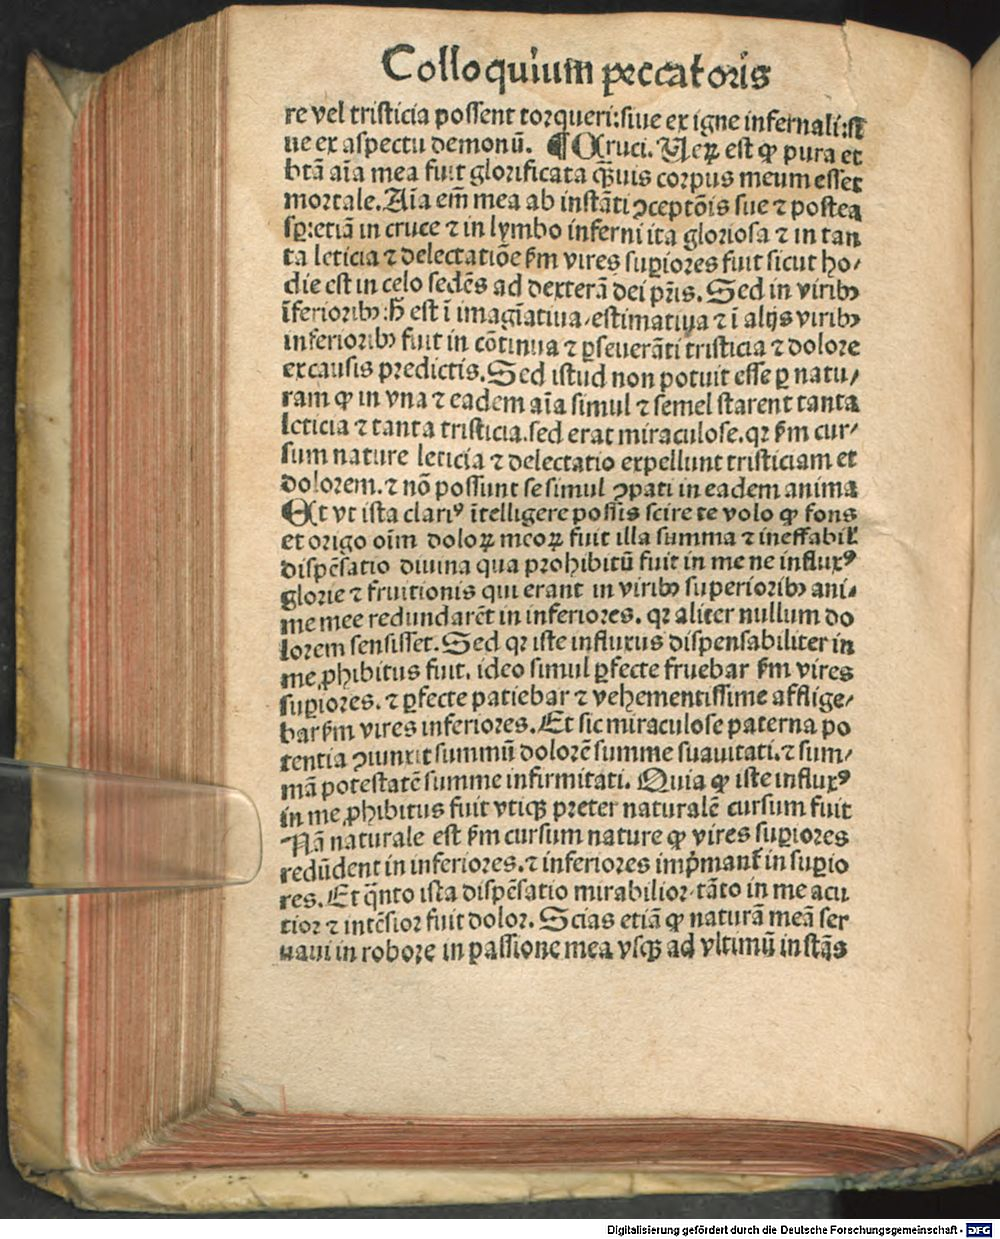 Colloquium peccatoris
re vel tristicia possent torqueri:siue ex igne infernali:si
ue ex aspectu demonū. ¶ Cruci. Ueꝝ est ꝙ pura et
btā aīa mea fuit glorificata qͣ̄uis corpus meum esset
mortale. Aīa em̄ mea ab instāti ꝯceptōis sue ⁊ postea
sꝑ:etiā in cruce ⁊ in lymbo inferni ita gloriosa ⁊ in tan
ta leticia ⁊ delectatiōe ẜm vires suꝑiores fuit sicut ho⸗
die est in celo sedēs ad dexterā dei pr̄is. Sed in viribꝫ
īferioribꝫ:ħ est ī imagīatiua,estimatiua ⁊ ī alijs viribꝫ
inferioribꝫ fuit in cōtinua ⁊ ꝑseuerāti tristicia ⁊ dolore
ex causis predictis. Sed istud non potuit esse ꝑ natu⸗
ram ꝙ in vna ⁊ eadem aīa simul ⁊ semel starent tanta
leticia ⁊ tanta tristicia.sed erat miraculose.qꝛ ẜm cur⸗
sum nature leticia ⁊ delectatio expellunt tristiciam et
dolorem.⁊ nō possunt se simul ꝯpati in eadem anima
Et vt ista clariꝰ ītelligere possis scire te volo ꝙ fons
et origo oīm doloꝝ meoꝝ fuit illa summa ⁊ ineffabil̕
dispēsatio diuina qua prohibitū fuit in me ne influxꝰ
glorie ⁊ fruitionis qui erant in viribꝫ superioribꝫ ani⸗
me mee redundarēt in inferiores. qꝛ aliter nullum do
lorem sensisset. Sed qꝛ iste influxus dispensabiliter in
me ꝓhibitus fuit. ideo simul ꝑfecte fruebar ẜm vires
suꝑiores. ⁊ ꝑfecte patiebar ⁊ vehementissime afflige⸗
bar ẜm vires inferiores. Et sic miraculose paterna po
tentia ꝯiunxit summū dolorē summe suauitati.⁊ sum⸗
mā potestatē summe infirmitati. Quia ꝙ iste influxꝰ
in me ꝓhibitus fuit vtiqꝫ preter naturalē cursum fuit
Nā naturale est ẜm cursum nature ꝙ vires suꝑiores
redūdent in inferiores.⁊ inferiores imp̄mant̕ in suꝑio
res. Et qͣ̄nto ista dispēsatio mirabilior tāto in me acu
tior ⁊ intēsior fuit dolor. Scias etiā ꝙ naturā meā ser
uaui in robore in passione mea vsqꝫ ad vltimū instās
Digitalisierung gefördert durch die Deutsche Forschungsgemeinschaft - DFG